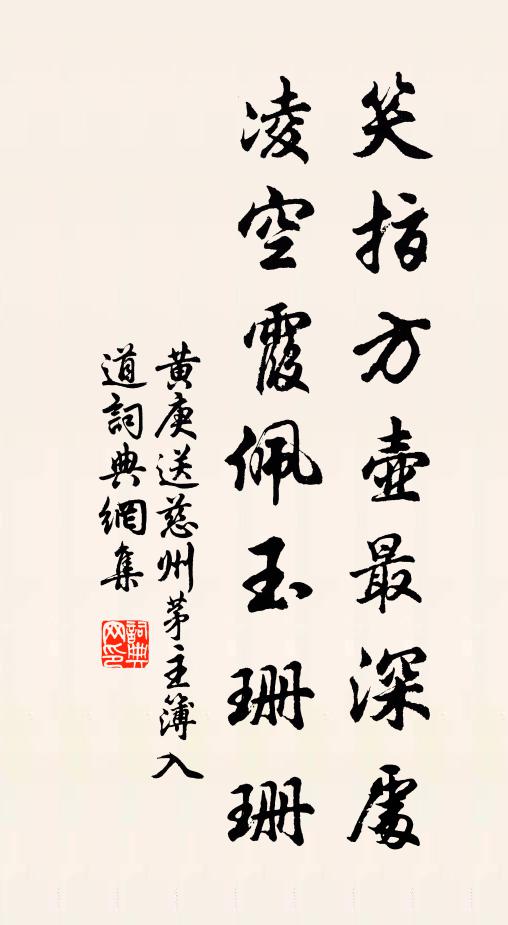 笑指方壺最深處
凌空霞佩玉珊珊
黃庚送慈州茅主簿入
道詞典網集
詞典
网印